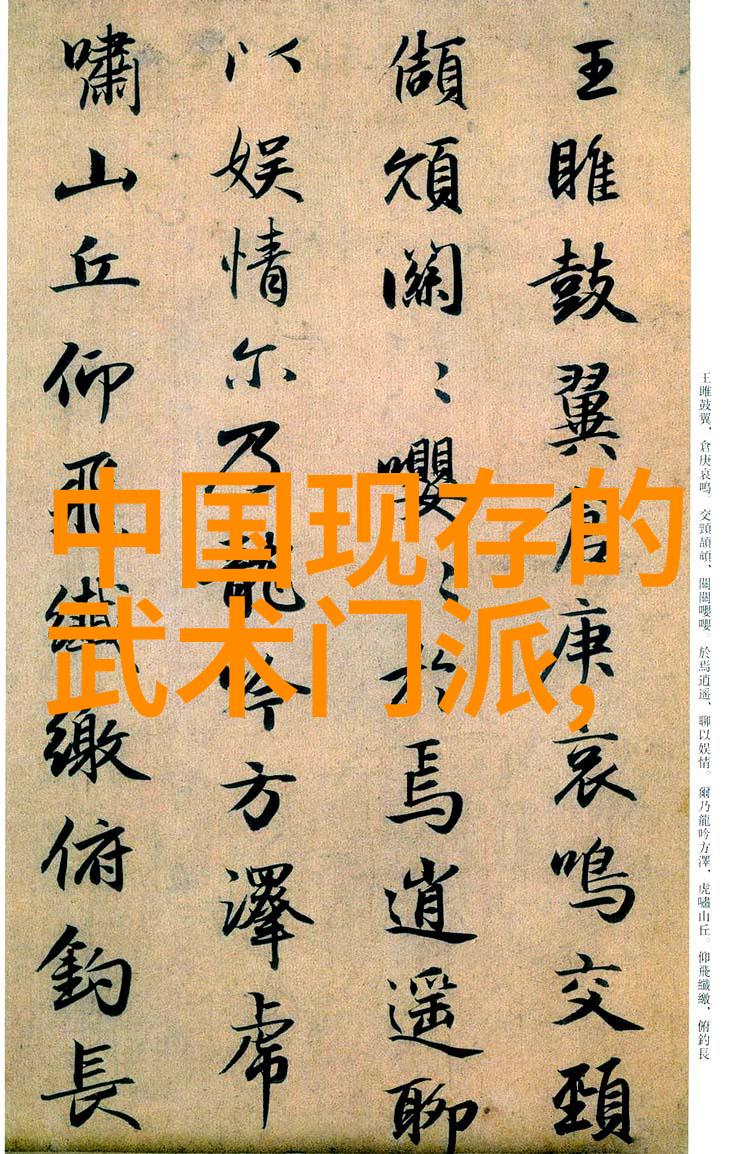 中国现存的
武术门派,
王雎鼓翼倉庚哀鳴交頸
頡頏關〻嚶〻於焉逍遥聊
以娱情尔乃龍吟方澤虎
嘯山丘仰飛纖繳俯釣長
王雎鼓翼、倉庚哀鳴。交頸頡頏、關關嚶嚶。於焉逍遥、聊以娱情。爾乃龍吟方澤、虎嘯山丘。仰飛纖繳、俯釣長